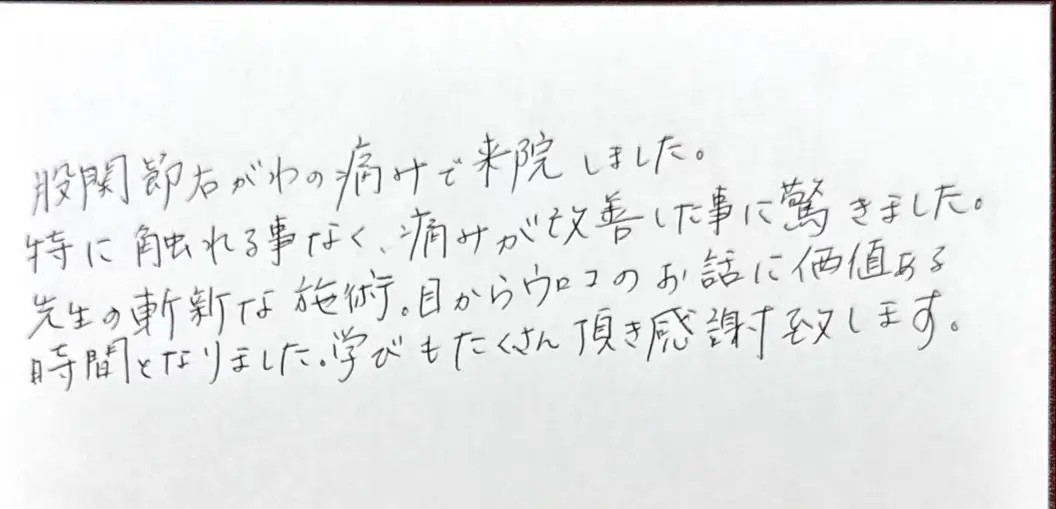 股関節右がわの痛みで来院しました。
特に触れる事なく、痛みが改善した事に驚きました。
先生の斬新な施術。目からウロコのお話に価値ある
時間となりました。学びもたくさん頂き感謝致します。